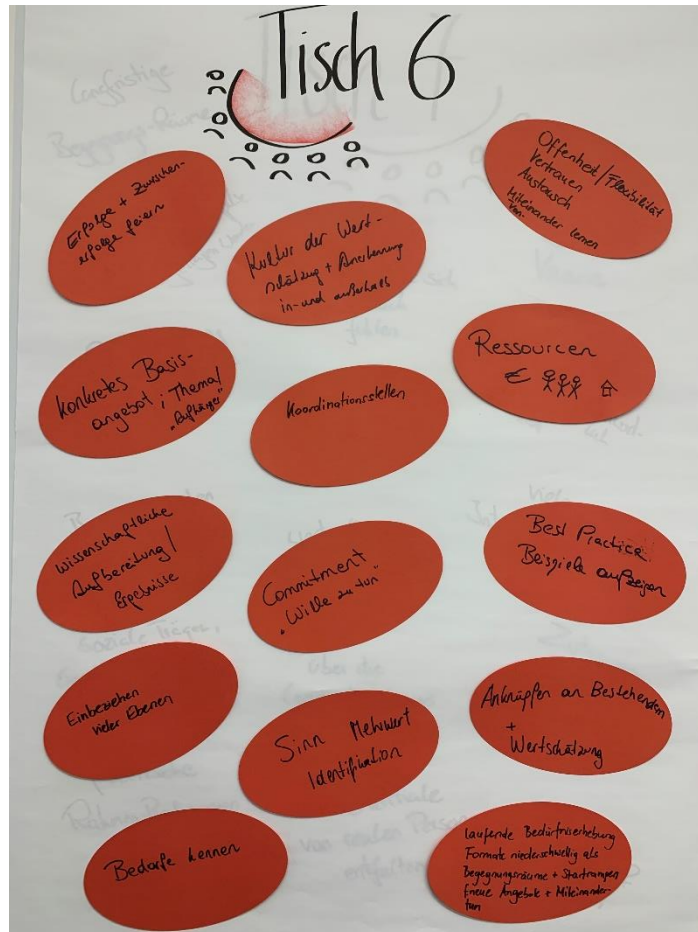 Tisch 6
Erfolge + Zwischen-
erfolge feiern
Kultur der Wert-
schätzung + Anerkennung
in- und außerhalb
Offenheit/Flexibilität
Vertrauen
Austausch
Miteinander lernen
von-
Konkretes Basis-
angebot; Thema/
"Aufhänger"
Koordinationsstellen
Ressourcen
€
Wissenschaftliche
Aufbereitung/
Ergebnisse
Commitment
"Wille zu tun"
Best Practice
Beispiele aufzeigen
Einbeziehen
vieler Ebenen
Sinn Mehrwert
Identifikation
Anknüpfen an Bestehendem
+
Wertschätzung
Bedarfe kennen
laufende Bedürfniserhebung
Formate niederschwellig als
Begegnungsräume + Startrampen
f. neue Angebote + Miteinander-
tun